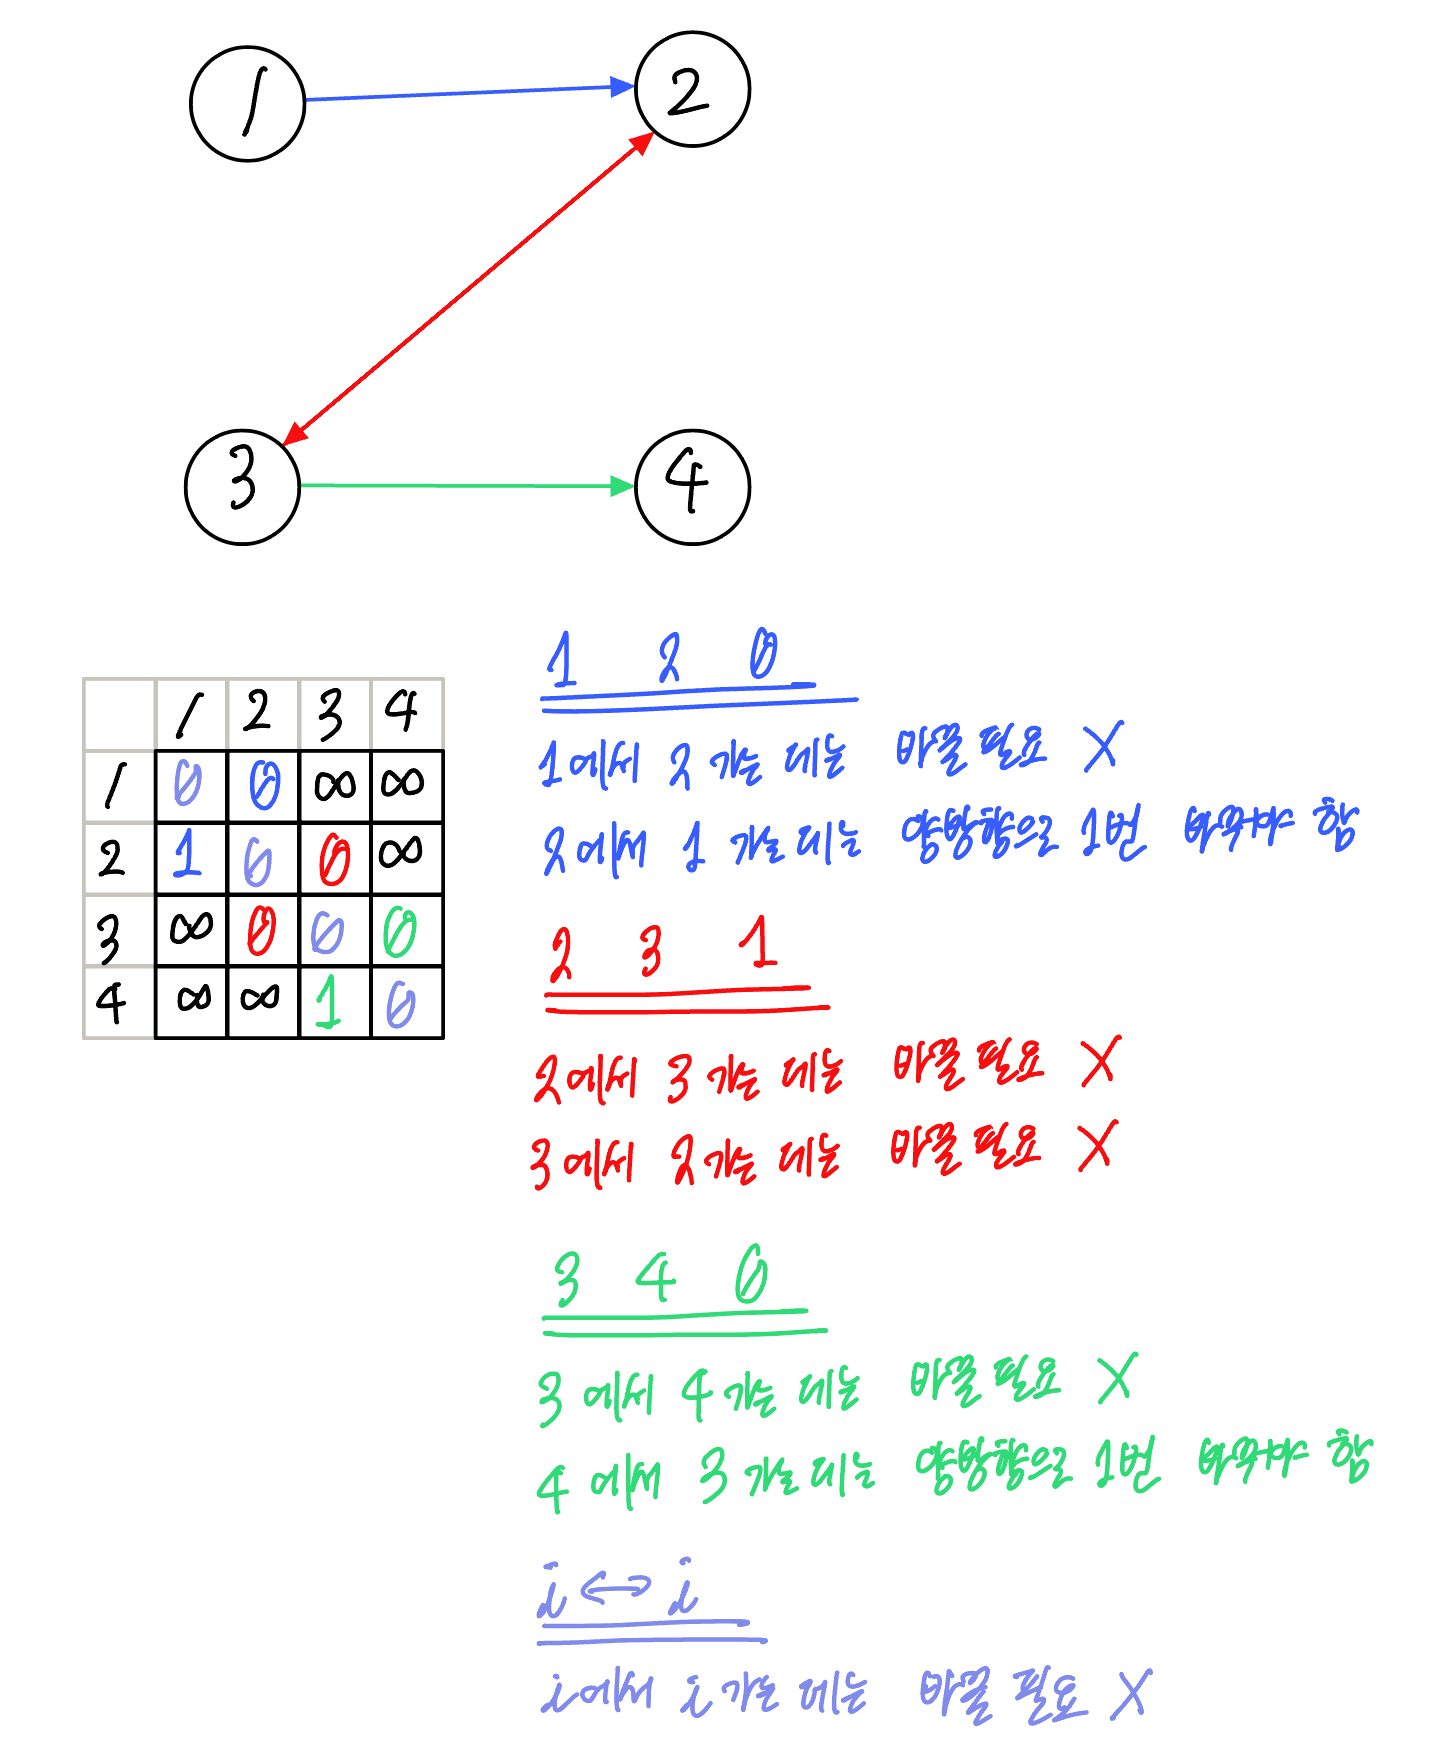 1 2
3 4
1 2 3 4
1 0 0 ∞ ∞
2 1 0 0 ∞
3 ∞ 0 0 0
4 ∞ ∞ 1 0
1 2 0
1에서 2 가는 데는 바꿀 필요 X
2에서 1 가는 데는 양방향으로 1번 바꿔야 함
2 3 1
2에서 3 가는 데는 바꿀 필요 X
3에서 2 가는 데는 바꿀 필요 X
3 4 0
3에서 4 가는 데는 바꿀 필요 X
4에서 3 가는 데는 양방향으로 1번 바꿔야 함
i ↔ i
i에서 i 가는 데는 바꿀 필요 X